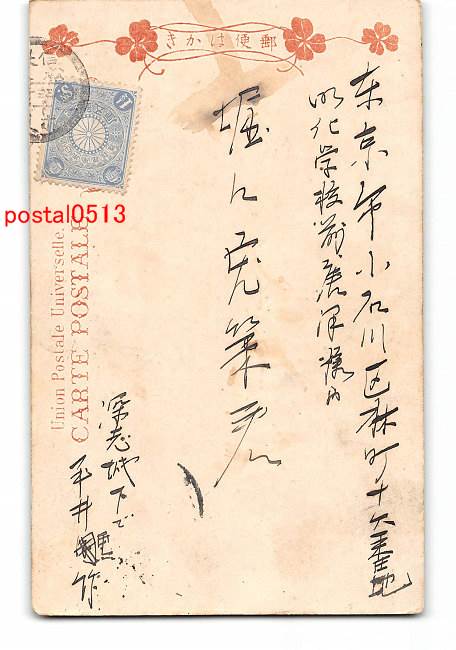 郵便はかき
東京市小石川区林町十六番地
明化学校前唐沢様内
堀江虎第君
深志城下で
平井
Union Postale Universelle.
CARTE POSTALE
postal0513